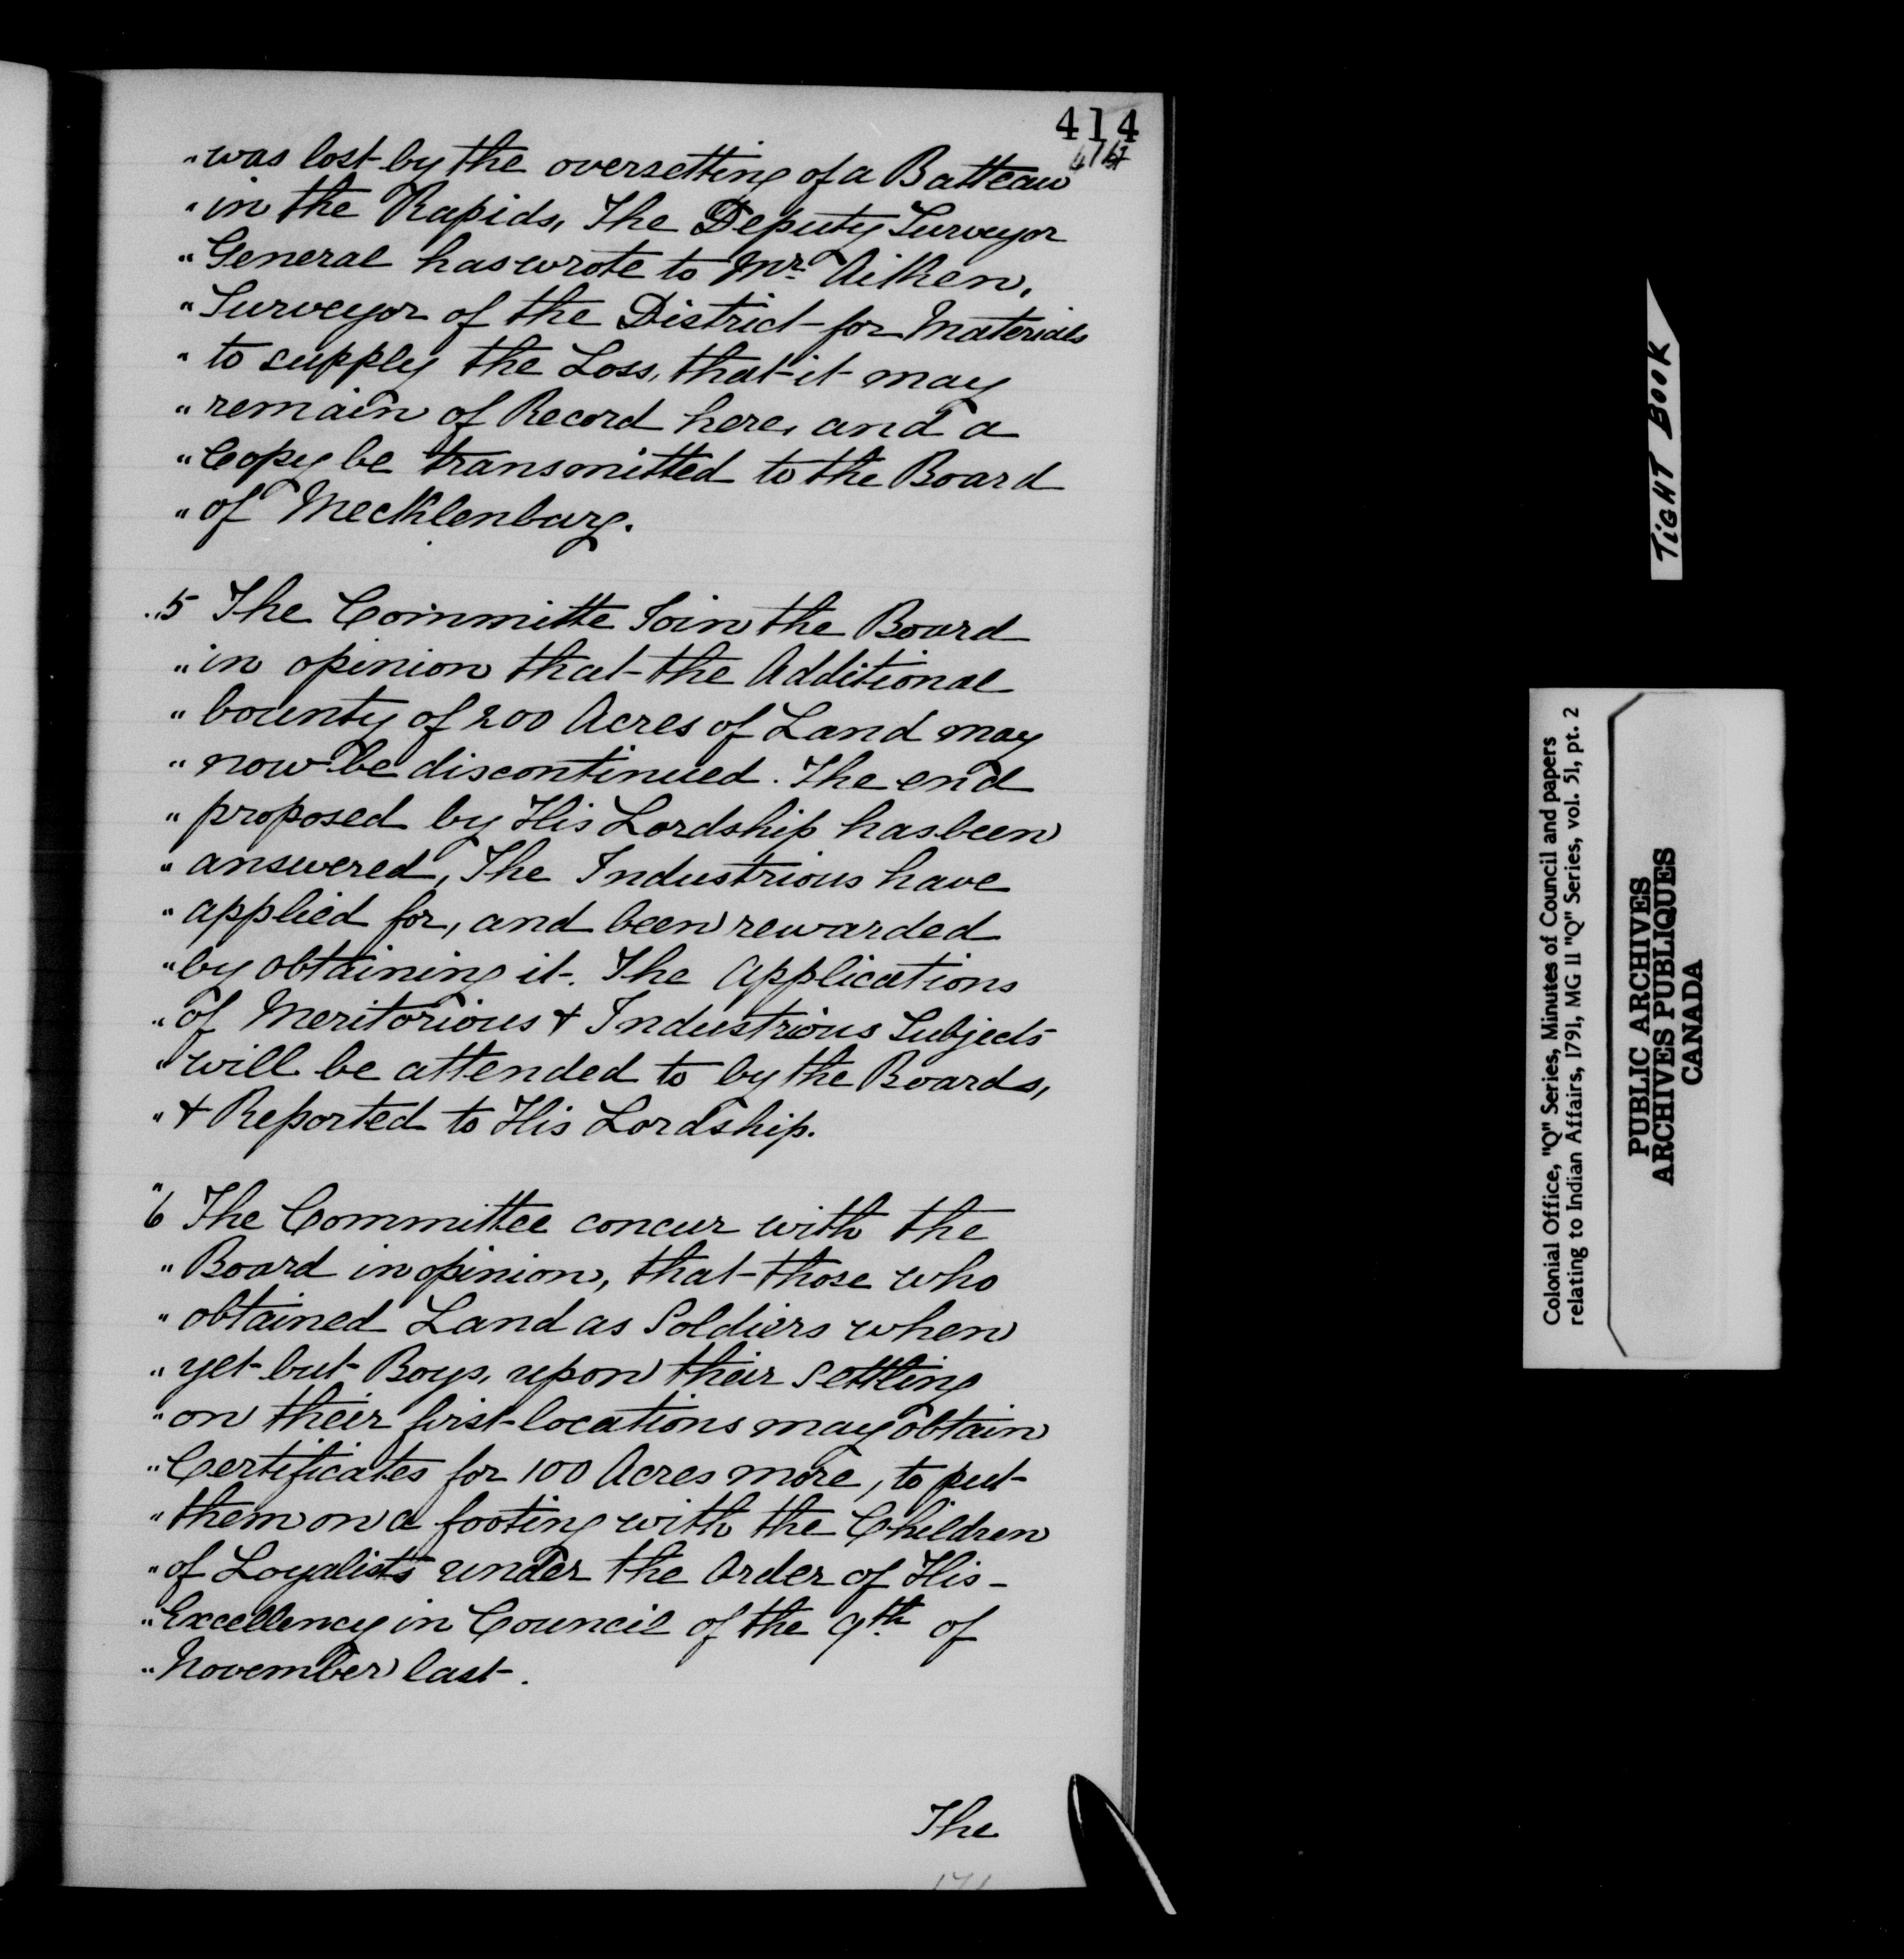 414
"was lost by the oversetting of a Batteau
"in the Rapids, The Deputy Surveyor
"General has wrote to Mr. Aitken,
"Surveyor of the District for Materials
"to supply the Loss, that it may
"remain of Record here, and a
"Copy be transmitted to the Board
"of Mecklenburg.
"5 The Committe Join the Board
"in opinion that the Additional
"bounty of 200 Acres of Land may
"now be discontinued. The end
"proposed by His Lordship has been
"answered, The Industrious have
"applied for, and been rewarded
"by obtaining it. The Applications
"of Meritorious & Industrious Subjects
"will be attended to by the Boards,
"& Reported to His Lordship.
"6 The Committee concur with the
"Board in opinion, that those who
"obtained Land as Soldiers when
"yet but Boys, upon their Settling
"on their first locations may obtain
"Certificates for 100 Acres more, to put
"them on a footing with the Children
"of Loyalists under the Order of His
"Excellency in Council of the 9th of
"November last.
The
TIGHT BOOK
Colonial Office, "Q" Series, Minutes of Council and papers
relating to Indian Affairs, 1791, MG 11 "Q" Series, vol. 51, pt. 2
PUBLIC ARCHIVES
ARCHIVES PUBLIQUES
CANADA